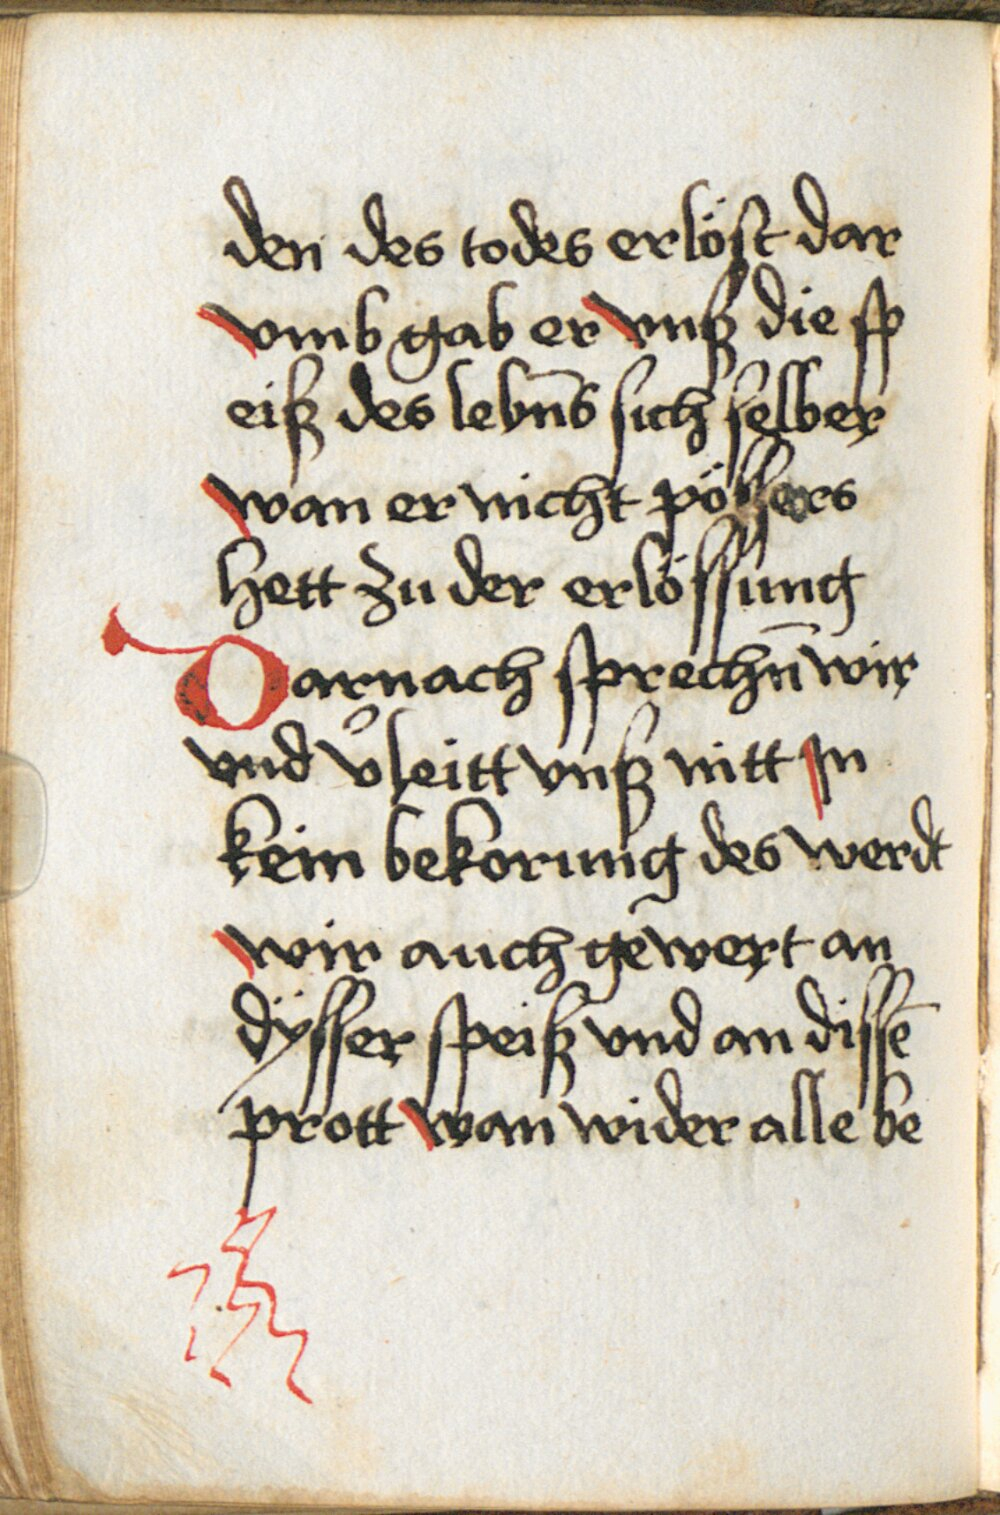 den des todes erlöst dar
vmb gab er vnß die sp
eiß des lebn̄s sich selber
wan er nicht pössers
hett zu der erlössung
Darnach sprechn̄ wir
vnd v͛leitt vnß nitt In
kein bekorung des werdt
wir auch gewert an
dÿsser speiß vnd an dissē
prott wan wider alle be